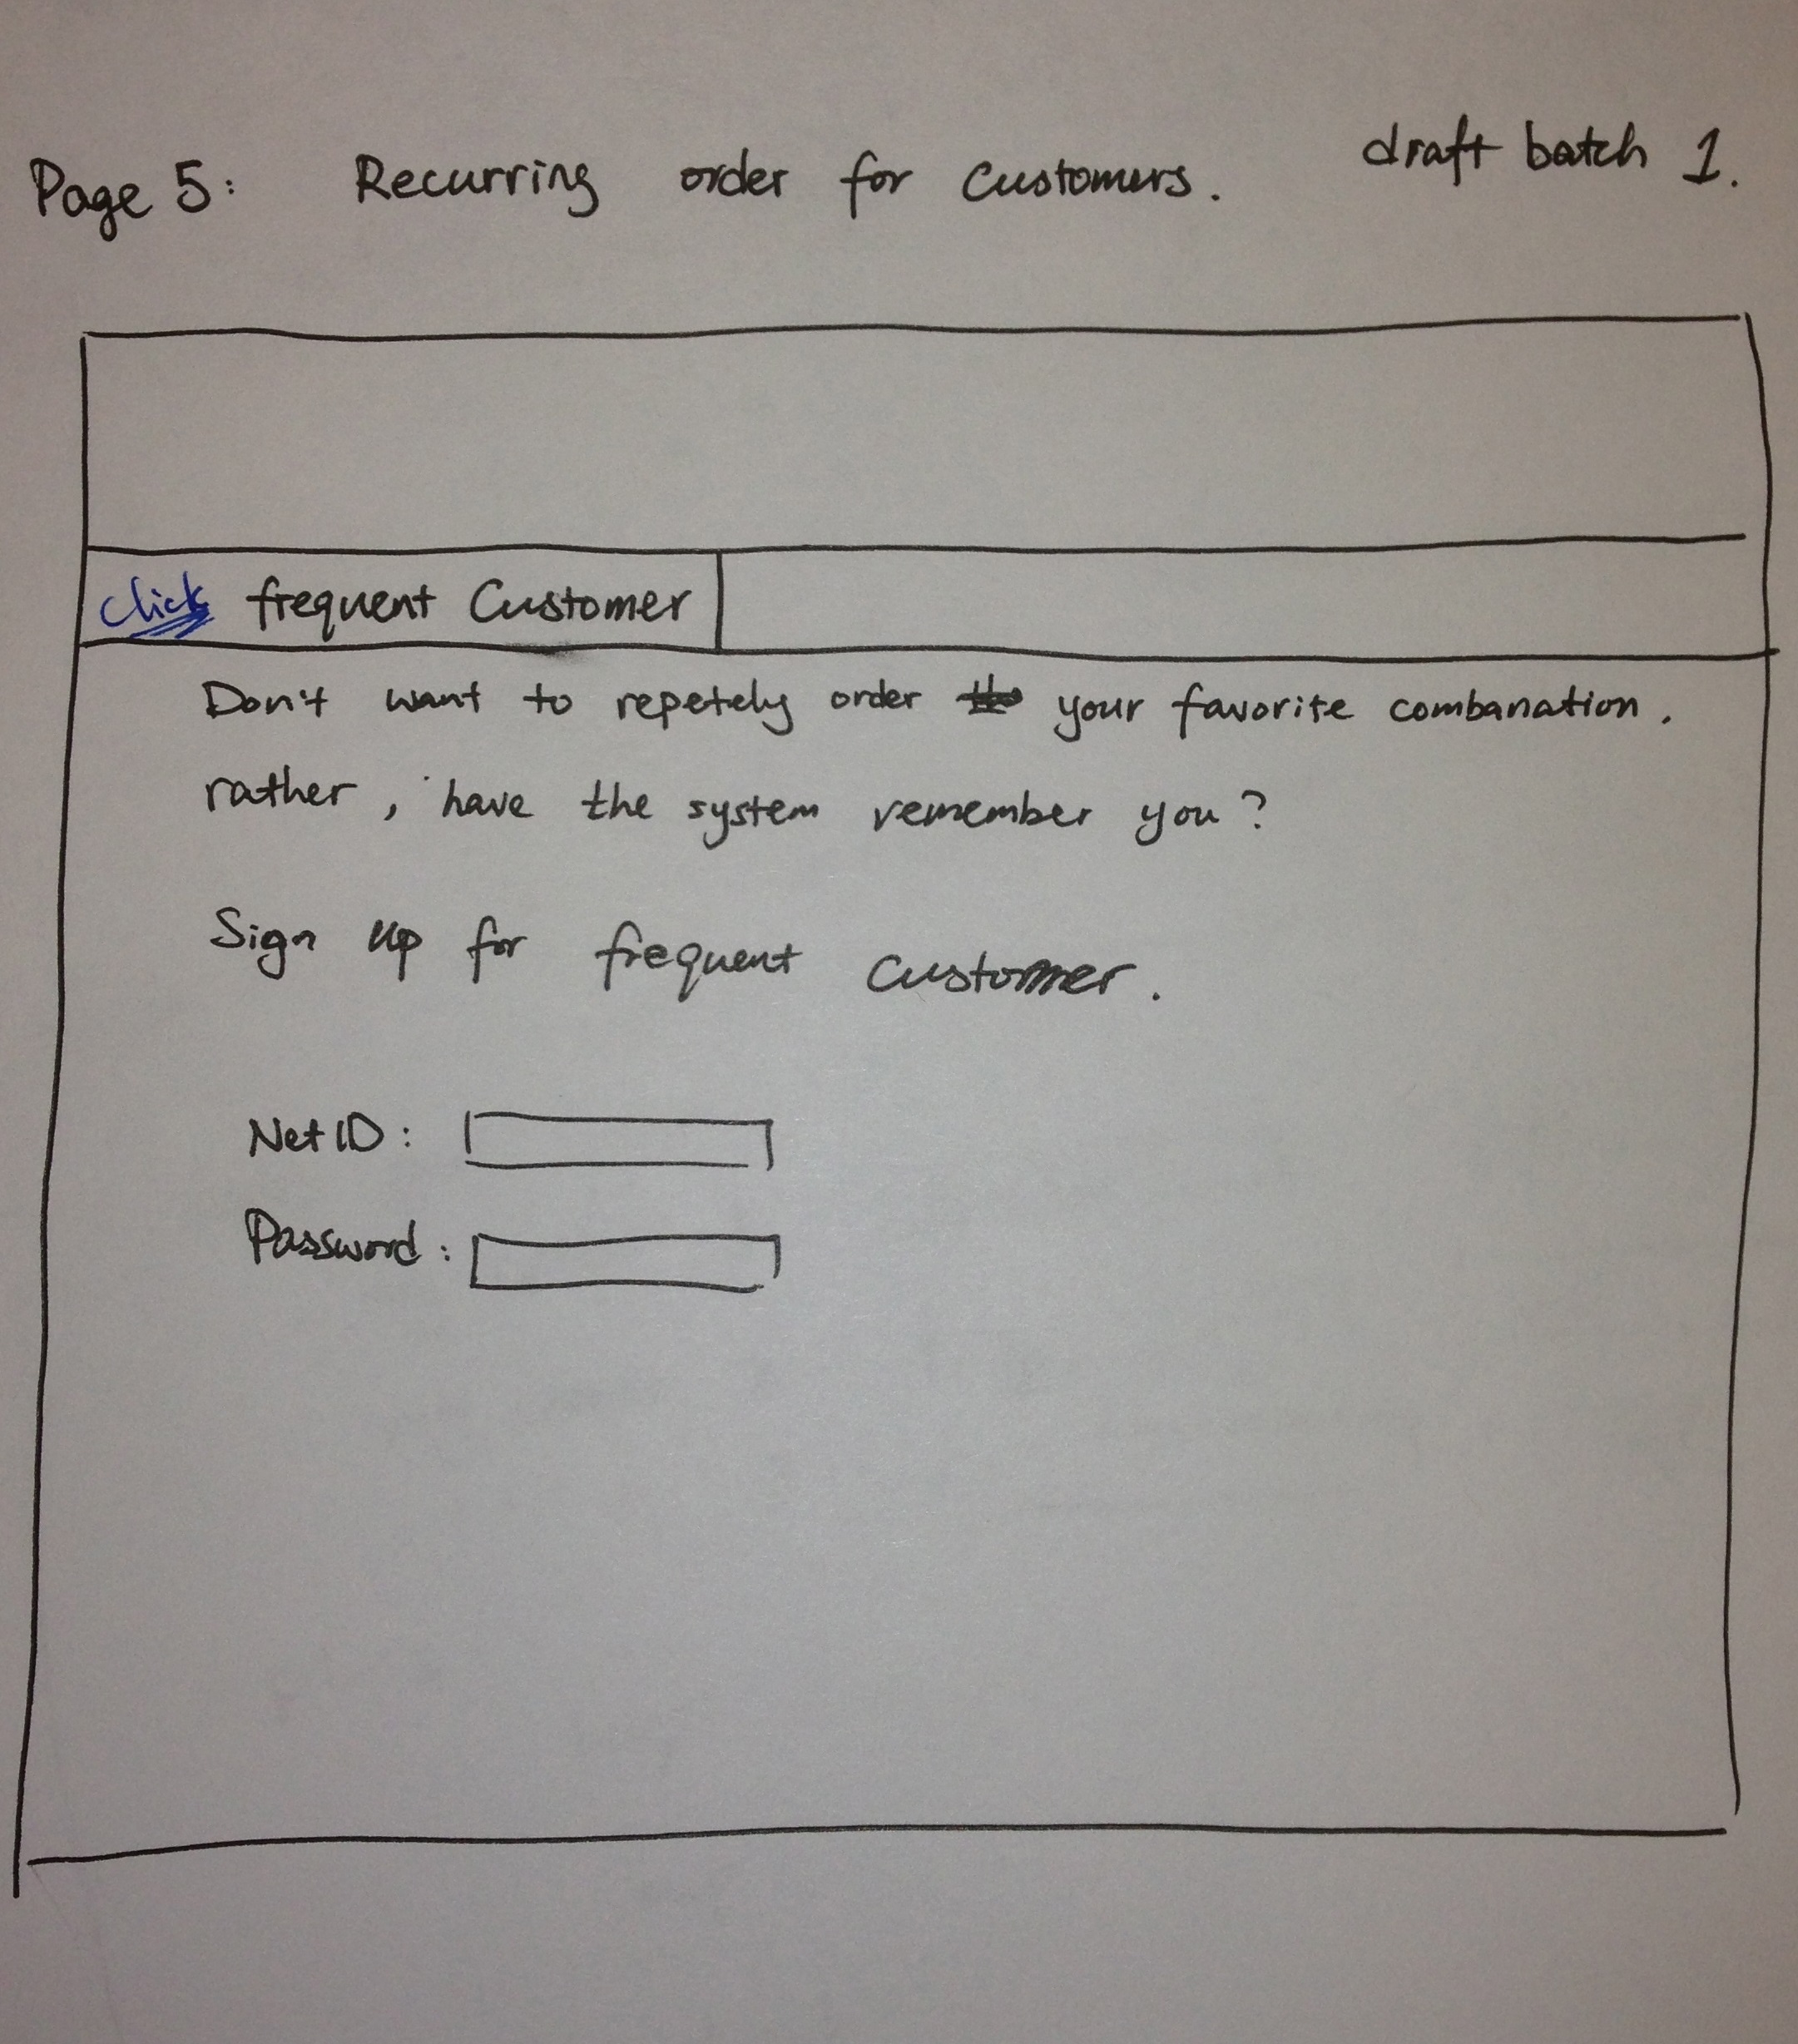 Page 5: Recurring order for Customers. draft batch 1.
click frequent Customer
Don't want to repetely order your favorite combanation.
rather, have the system remember you?
Sign Up for frequent Customer.
NetID:
Password: